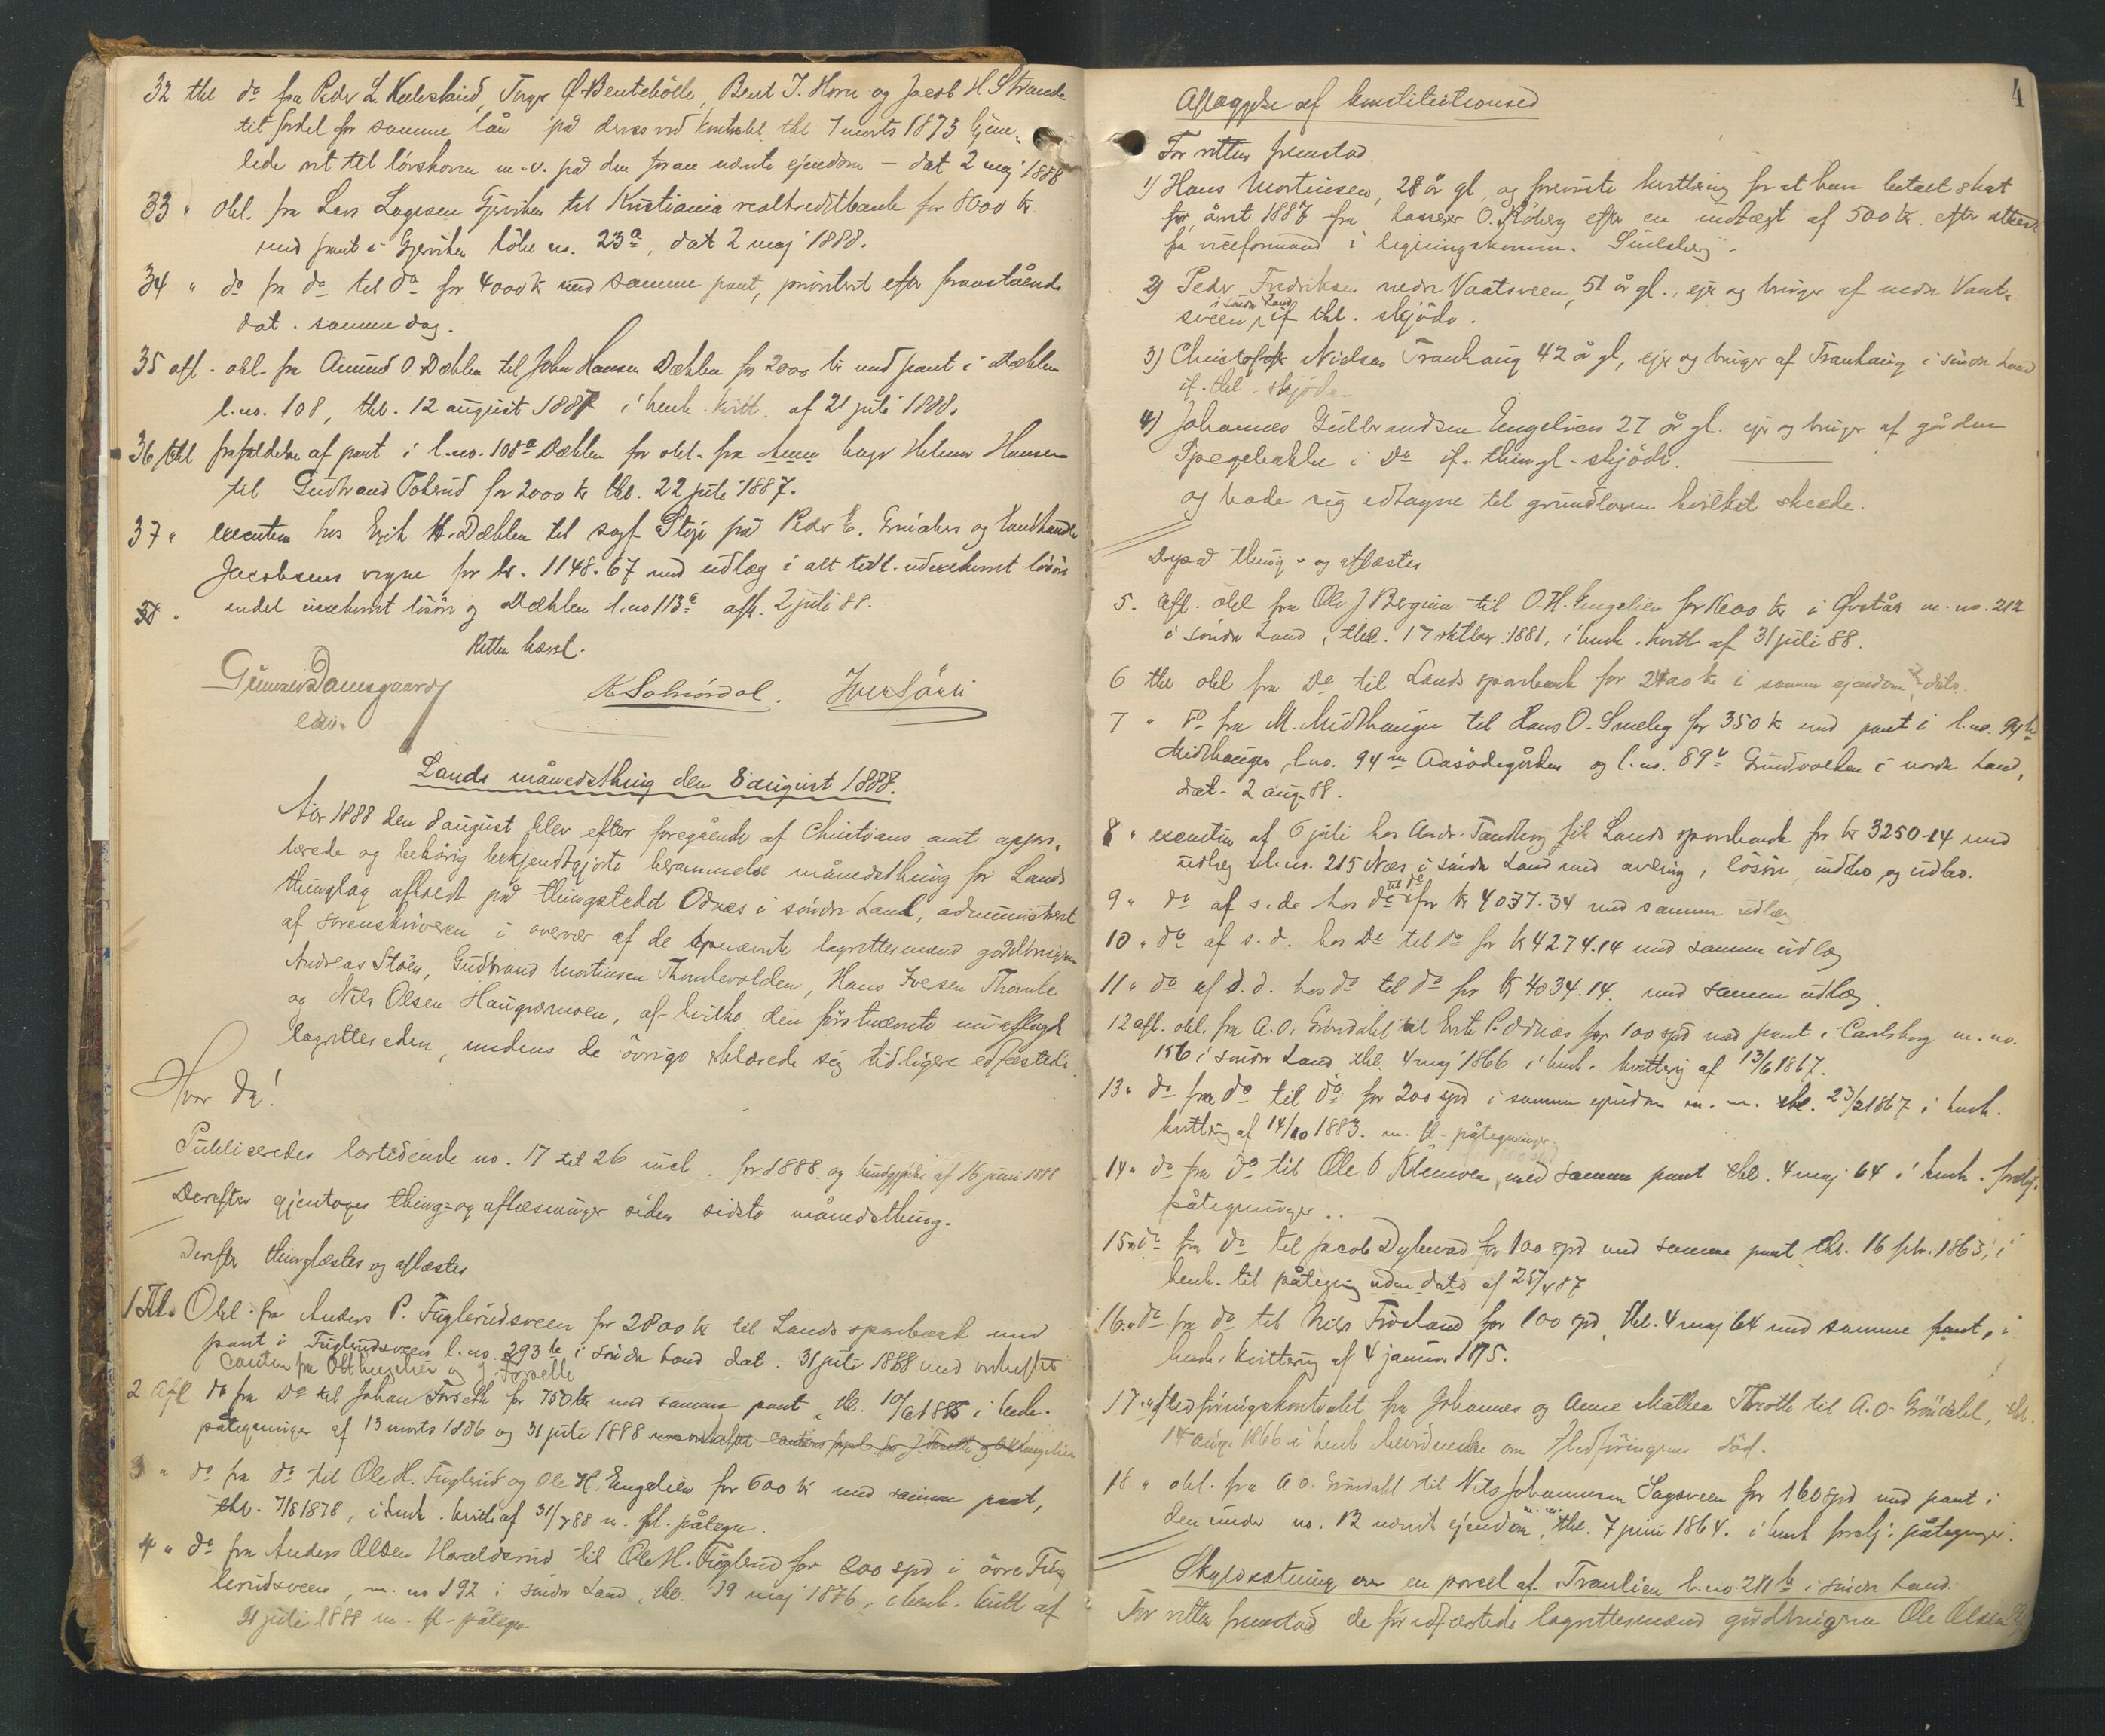 32 thl do fra Peder L. Keileslaid, Torger Ø. Bentebölle, Bent J. Horn og Jacob H Strande
tit fordel for samme lån på deres ved kontrakt thl 7 marts 1873
lede ret til lövskoven m.v. på den foran nævnte ejendom – dat 2 maj 1888
33 " obl. fra Lars Larsen Gjerviken til Kristiania realkreditbank for 8000 kr
med pant i Gjerviken löbe no. 23a, dat 2 maj 1888.
34 " do fra do til do for 4000 kr med samme pant, prioritert efter foranstående
dat. samme dag.
35 afl. obl. fra Amund O. Dæhlen til John Hansen Dæhlen for 2000 kr med pant i Dæhlen
l.no. 108, thl. 12 august 1887 i henh. kvitt. af 21 juli 1888.
36 thl frafaldelse af pant i l.no. 108a Dæhlen for obl. fra Hansen
til Gudbrand Tokerud for 2000 kr thl. 22 juli 1887.
37 " execution hos Erik H. Dæhlen til sagf. Stoje på Peder E. og landhandler
Jacobsens vegne for kr. 1148.67 med udlæg i alt tidl. udexekveret lösöre
38 " endel uexekveret lösöre og Dæhlen l.no 113a afh. 2 juli 88.
Retten hævet.
Gunnar Damsgaard
edsv.
K Solnördal. Iver Sörli
Lands månedsthing den 8 august 1888.
Aar 1888 den 8 august blev efter foregående af Christians amt appro-
berede og behörig bekjendtgjorte berammelse månedsthing for Lands
thinglag afholdt på thingstedet Odnæs i söndre Land, administreret
af sorenskriveren i overvær af de opnævnte lagrettesmænd gårdbrugerne
Andreas Stöen, Gudbrand Mortensen Thomlevolden, Hans Iversen Thomle
og Nils Olsen Haugnermoen, af hvilke den förstnævnte nu aflagde
lagretteseden, medens de övrige erklærede sig tidligere edfæstede.
Hvor da!
Publiceredes lovtidende no. 17 til 26 incl. for 1888 og kundgjörelse af 16 juni 1888
Derefter gjentoges thing- og aflæsninger siden sidste månedsthing.
Derefter thinglæstes og aflæstes
1 Thl. Obl. fra Anders P. Fuglerudsveen for 2800 kr til Lands sparebank med
pant i Fuglerudsveen l.no. 293b i söndre Land dat. 31 juli 1888 med vedheftet
caution fra O H Engelien og J. Forseth
2 Afl do fra Do til Johan Forseth for 750 kr med samme pant, thl. 10/6 1885 i henh.
påtegninger af 13 marts 1886 og 31 juli 1888
3 " do fra do til Ole H. Fuglerud og Ole H. Engelien for 600 kr med samme pant,
thl. 7/8 1878, i henh. kvitt af 31/7 88 m. fl. påtegn.
4 " do fra Anders Olsen Haraldsrud til Ole H. Fuglerud for 200 spd i övre Fug
lerudsveen, m. no 192 i söndre Land, thl. 19 maj 1876, i henh. kvitt af
31 juli 1888 m. fl. påtegn.
4
Aflæggelse af konstitutionsed
For retten fremstod
1) Hans Mortinsen, 28 år gl, og foreviste kvittering for at han betalt skat
for året 1887 fra kasserer O. Röberg efter en indtægt af 500 kr. efter attest
fra viceformand i ligningskomm. Smedsberg.
2) Peder Fredriksen nedre Vaatsveen, 51 år gl., ejer og bruger af nedre Vaat-
i söndre Land
sveen, if thl. skjöde.
3) Christoffer Nielsen Tranhaug 42 år gl, ejer og bruger af Tranhaug i söndre Land
if. thl. skjöde
4) Johannes Gulbrandsen Engelien 27 år gl. ejer og bruger af gården
Spegebakke i Do if. thingl. skjöde.
og bade sig edtagne til grundloven hvilket skeede.
Derpå thing- og aflæstes
5. afl. obl fra Ole J Bergum til O.H. Engelien for 1600 kr i Övstås m. no. 212
i söndre Land, thl. 17 oktbr. 1881, i henh. kvitt af 31 juli 88.
6 thl obl fra Do til Lands sparebank for 2400 kr i samme ejendom, dato
7 " do fra M. Midthaugen til Hans O. Smeby for 350 kr med pant i l.no. 94
Midthaugen, l.no. 94m Aasödegården og l.no. 89 Grundvolden i nordre Land,
dat. 2 aug. 88.
8 " execution af 6 juli hos Andr. Tandberg til Lands sparebank for kr 3250-14 med
udlæg i l.no. 215 Næs i söndre Land med avling, lösöre, indbo og udbo.
9 " do af s. d. hos do til do for kr 4037.34 med samme udlæg
10 " do af s. d. hos Do til do for kr 4274.14 med samme udlæg
11 " do af s. d. hos do til do for kr 4034.14 med samme udlæg.
12 afl. obl. fra A. O. Gröndahl til Erik P. Odnæs for 100 spd med pant i Carlsborg m. no.
156 i söndre Land thl. 4 maj 1866 i henh. kvittering af 13/6 1867.
13 " do fra do til do for 200 spd i samme ejendom m. m. thl. 23/2 1867 i henh.
kvittering af 14/10 1883. m. fl. påtegninger.
14 " do fra do til Ole O Klemoen, med samme pant thl. 4 maj 64 i henh. forskj.
påtegninger..
15 " do fra do til Jacob Dyherad for 100 spd med samme pant thl. 16 febr. 1863, i
henh. til påtegning uden dato af 25/7 87
16. " do fra do til Nils Fivsland for 100 spd, thl. 4 maj 64 med samme pant, i
henh. kvittering af 4 januar 1875.
17. " flædföringskontrakt fra Johannes og Anne Mathea Throtte til A. O. Gröndahl, thl.
14 aug. 1866 i henh bevidnelse om flædföringens död.
18 " obl. fra A O. Gröndahl til Nils Johannesen Sagsveen for 160 spd med pant i
den under no. 12 nævnte ejendom m. m. thl. 7 juni 1864. i henh forskj: påtegninger.
Skyldsætning over en parcel af Tranlien l.no. 211b i söndre Land.
For retten fremstod de för edfæstede lagrettesmænd gårdbrugerne Ole Olsen